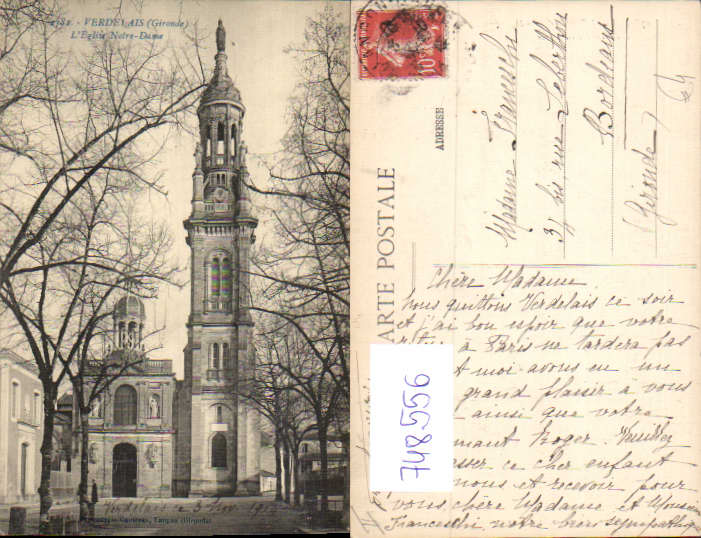 VERDELAIS (Gironde)
L'Église Notre-Dame
Verdelais ce 5 Nov
CARTE POSTALE
ADRESSE
10c
Madame Franceschi
34 bis rue
Bordeaux
(Gironde)
748556
Chère Madame
Nous quittons Verdelais ce soir
et j'ai bon espoir que votre
à Paris ne tardera pas
et moi avons eu un
grand plaisir à vous
ainsi que votre
mant Roger. Veuillez
ce cher enfant
nous et recevoir pour
vous chère Madame et Monsieur
Franceschi notre bien sympathiq